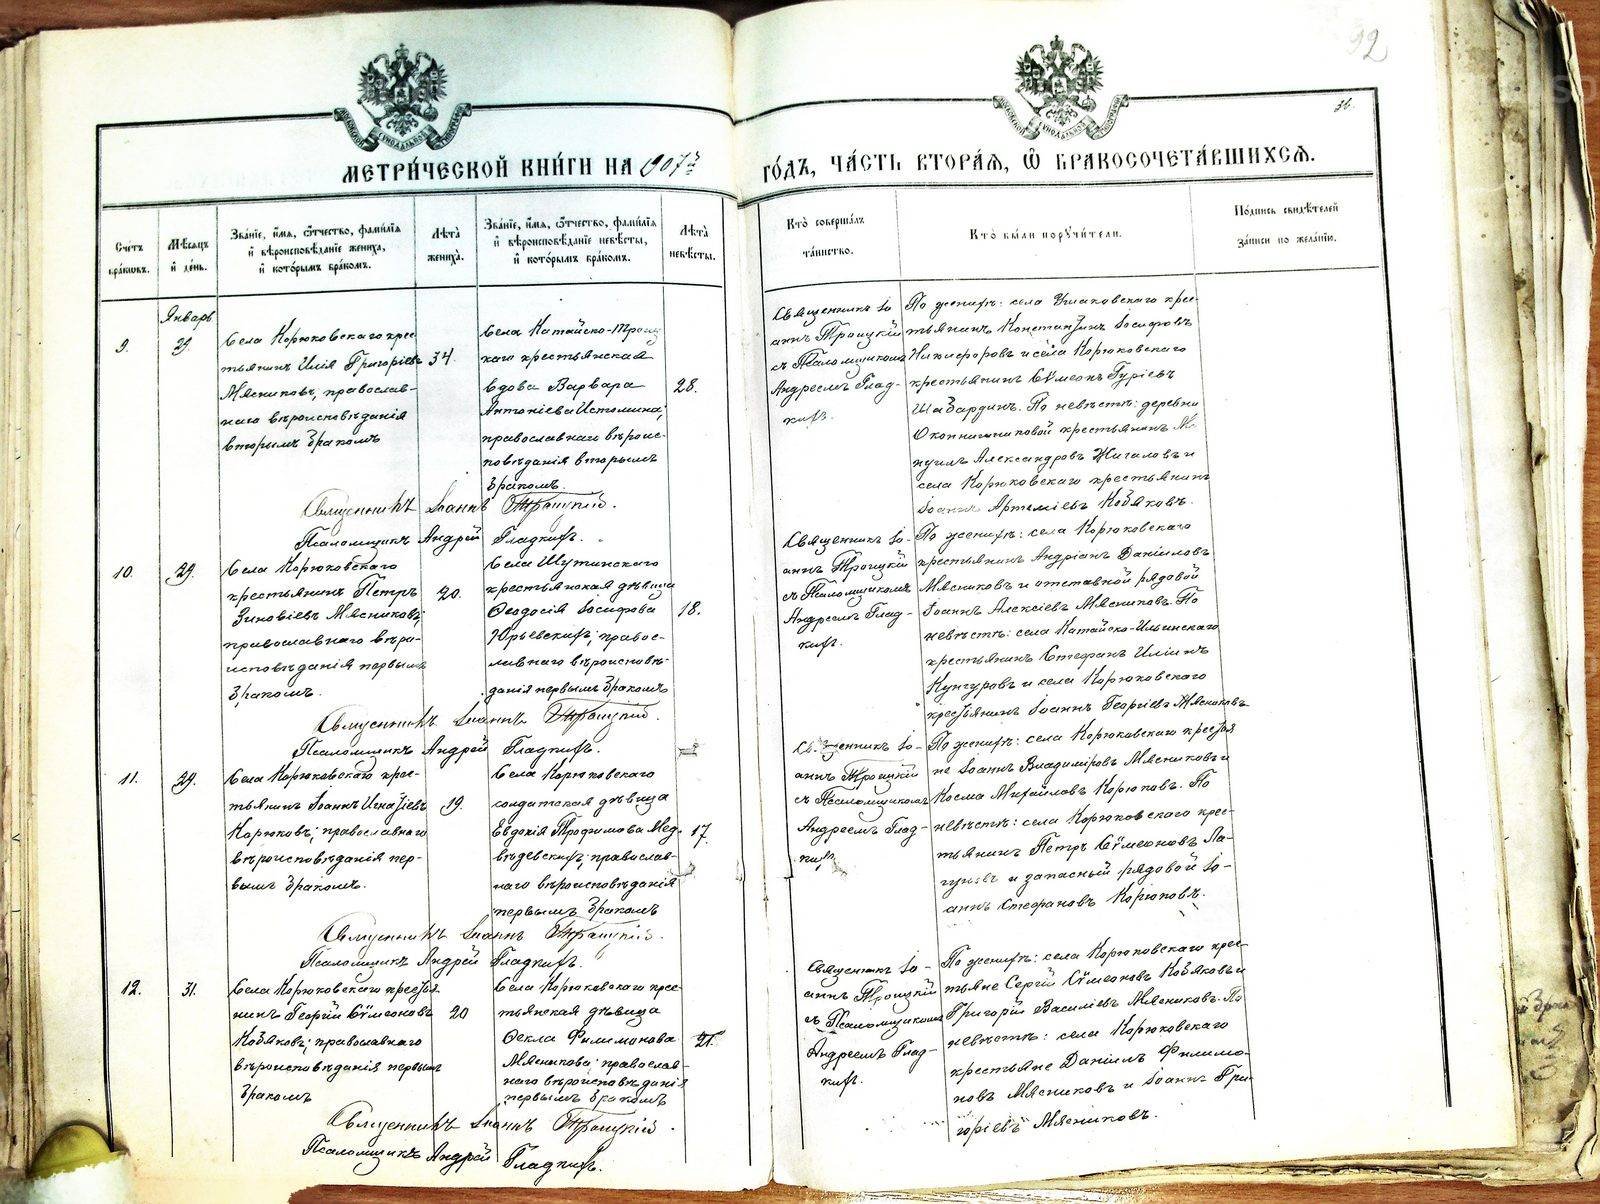 92
36.
МЕТРИ́ЧЕСКОЙ КНИ́ГИ НА 1907й
ГО́ДЪ, ЧА́СТЬ ВТОРА́Я, Ѿ БРАКОСОЧЕТА́ВШИХСЯ.
Сче́тъ бра́ковъ.
Мѣ́сяцъ и де́нь.
Зва́нїе, и́мя, ѻ́тчество, фами́лїя и вѣроисповѣ́данїе жениха̀, и кото́рымъ бра́комъ.
Лѣ́та жениха̀.
Зва́нїе, и́мя, ѻ́тчество, фами́лїя и вѣроисповѣ́данїе невѣ́сты, и кото́рымъ бра́комъ.
Лѣ́та невѣ́сты.
Кто̀ соверша́лъ та́инство.
Кто̀ бы́ли поручи́тели.
По́дпись свидѣ́телей за́писи по жела́нїю.
Январь
9.
29.
Села Корюковскаго крес-
тьянинъ Илія Григоріевъ
Мясниковъ, православ-
наго вѣроисповѣданія
вторымъ бракомъ
34.
Села Катайско-Троиц
каго крестьянская
вдова Варвара
Антоніева Истомина;
православнаго вѣроис-
повѣданія вторымъ
бракомъ.
28.
Священникъ Іо-
аннъ Троицкій
съ Псаломщикомъ
Андреемъ Глад-
кихъ.
По женихѣ: села Ушаковскаго крес-
тьянинъ Константинъ Іосифовъ
Никифоровъ и села Корюковскаго
крестьянинъ Сѵмеонъ Гуріевъ
Шабардинъ. По невѣстѣ: деревни
крестьянинъ Ма-
нуилъ Александровъ Жигаловъ и
села Корюковскаго крестьянинъ
Іоаннъ Артеміевъ Кобяковъ.
Священникъ Іоаннъ Троицкій.
Псаломщикъ Андрей Гладкихъ.
10.
29.
Села Корюковскаго
крестьянинъ Петръ
Зиновіевъ Мясниковъ;
православнаго вѣро-
исповѣданія первымъ
бракомъ.
20.
Села Шутинскаго
крестьянская дѣвица
Ѳеодосія Іосифова
Юрьевскихъ; правос-
лавнаго вѣроисповѣ-
данія первымъ бракомъ
18.
Священникъ Іо-
аннъ Троицкій
съ Псаломщикомъ
Андреемъ Глад-
кихъ.
По женихѣ: села Корюковскаго
крестьянинъ Андріанъ Даніиловъ
Мясниковъ и отставной рядовой
Іоаннъ Алексіевъ Мясниковъ. По
невѣстѣ: села Катайско-Ильинскаго
крестьянинъ Стефанъ Иліинъ
Кунгуровъ и села Корюковскаго
крестьянинъ Іоаннъ Георгіевъ Мясниковъ
Священникъ Іоаннъ Троицкій.
Псаломщикъ Андрей Гладкихъ.
11.
29.
Села Корюковскаго крес-
тьянинъ Іоаннъ Игнатіевъ
Корюковъ; православнаго
вѣроисповѣданія пер-
вымъ бракомъ.
19.
Села Корюковскаго
солдатская дѣвица
Евдокія Трофимова Мед-
вѣдевскихъ; православ-
наго вѣроисповѣданія
первымъ бракомъ
17.
Священникъ Іо-
аннъ Троицкій
съ Псаломщикомъ
Андреемъ Глад-
кихъ
По женихѣ: села Корюковскаго крестья
не Іоаннъ Владиміровъ Мясниковъ и
Косма Михайловъ Корюковъ. По
невѣстѣ: села Корюковскаго крес-
тьянинъ Петръ Сѵмеоновъ Ла-
гуновъ и запасный рядовой Іо-
аннъ Стефановъ Корюковъ.
Священникъ Іоаннъ Троицкій.
Псаломщикъ Андрей Гладкихъ.
12.
31.
Села Корюковскаго крестья
нинъ Георгій Сѵмеоновъ
Кобяковъ; православнаго
вѣроисповѣданія первымъ
бракомъ
20
Села Корюковскаго крес-
тьянская дѣвица
Ѳекла Филимонова
Мясникова; православ-
наго вѣроисповѣданія
первымъ бракомъ
21.
Священникъ Іо-
аннъ Троицкій
съ Псаломщикомъ
Андреемъ Глад-
кихъ.
По женихѣ: села Корюковскаго крес-
тьяне Сергій Сѵмеоновъ Кобяковъ и
Григорій Василіевъ Мясниковъ. По
невѣстѣ: села Корюковскаго
крестьяне Даніилъ Филимо-
новъ Мясниковъ и Іоаннъ Гри-
горіевъ Мясниковъ.
Священникъ Іоаннъ Троицкій.
Псаломщикъ Андрей Гладкихъ.